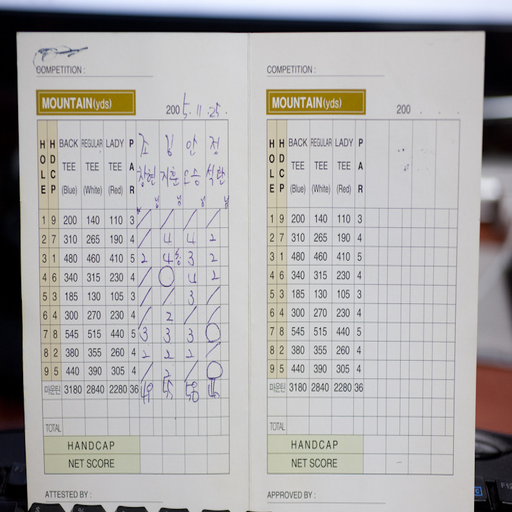 COMPETITION :
MOUNTAIN(yds)
2005. 11. 25.
HOLE HDCP BACK TEE (Blue) REGULAR TEE (White) LADY TEE (Red) PAR
1 9 200 140 110 3 / / / /
2 7 310 265 190 4 / 4 4 2
3 1 480 460 410 5 2 4 3 2
4 6 340 315 230 4 / O 4 2
5 3 185 130 105 3 / / 3 /
6 4 300 270 230 4 / 2 / /
7 8 545 515 440 5 3 3 3 O
8 2 380 355 260 4 2 2 2 /
9 5 440 390 305 4 / 2 / O
마운틴 3180 2840 2280 36
TOTAL
HANDCAP
NET SCORE
ATTESTED BY :
COMPETITION :
MOUNTAIN(yds)
200 . . .
HOLE HDCP BACK TEE (Blue) REGULAR TEE (White) LADY TEE (Red) PAR
1 9 200 140 110 3
2 7 310 265 190 4
3 1 480 460 410 5
4 6 340 315 230 4
5 3 185 130 105 3
6 4 300 270 230 4
7 8 545 515 440 5
8 2 380 355 260 4
9 5 440 390 305 4
마운틴 3180 2840 2280 36
TOTAL
HANDCAP
NET SCORE
APPROVED BY :